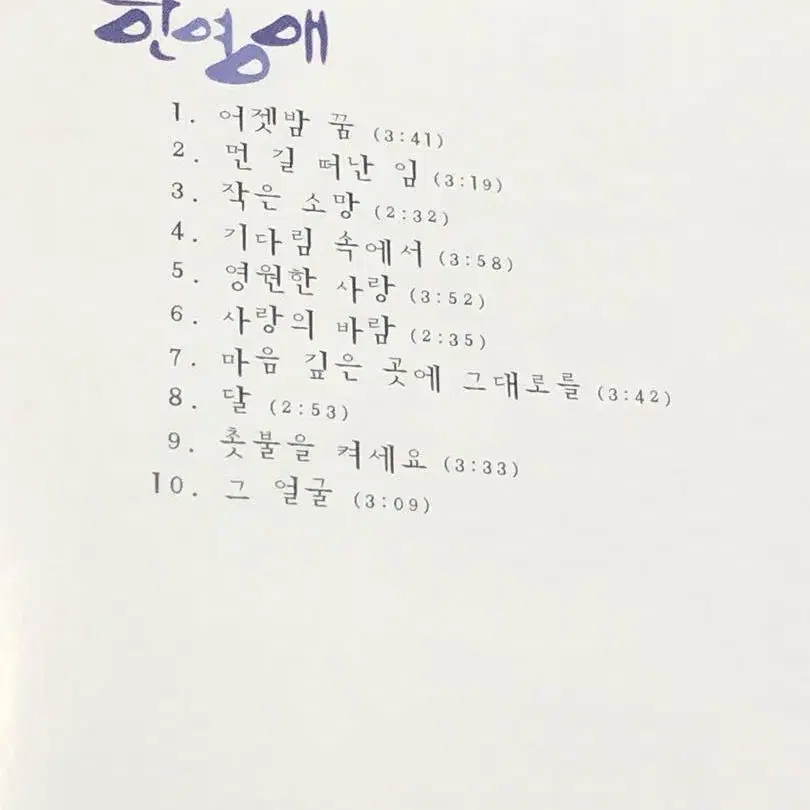 한영애
1. 어젯밤 꿈 (3:41)
2. 먼 길 떠난 임 (3:19)
3. 작은 소망 (2:32)
4. 기다림 속에서 (3:58)
5. 영원한 사랑 (3:52)
6. 사랑의 바람 (2:35)
7. 마음 깊은 곳에 그대로를 (3:42)
8. 달 (2:53)
9. 촛불을 켜세요 (3:33)
10. 그 얼굴 (3:09)